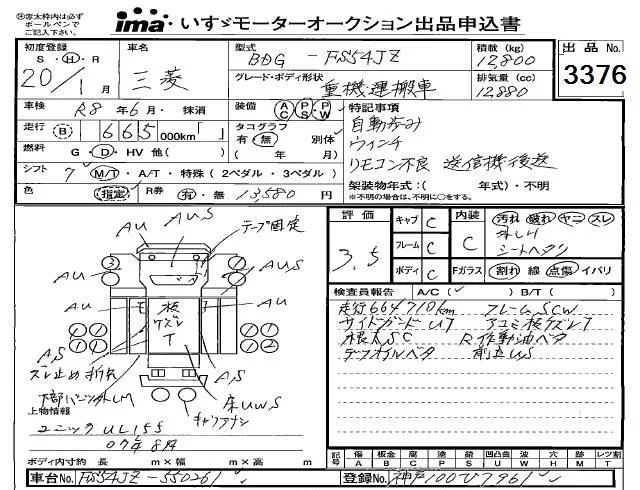 ㊟赤太枠内は必ず
ボールペンで
ご記入下さい。
ima いすゞモーターオークション出品申込書
初度登録 車名 型式 積載 (kg) 出品 No.
S・H・R 三菱 BDG-FS54JZ 12,800 3376
20/1月 グレード・ボディ形状 排気量 (cc)
重機運搬車 12,880
車検 R8年6月・抹消 装備 AC PS PW 特記事項
走行 (B) 665 000km「 」 タコグラフ 自動歩み
有・無 別体 ウインチ
燃料 G・D・HV 他( ) ( 年 月) リモコン不良 送信機後送
シフト 7 M/T・A/T・特殊(2ペダル・3ペダル) 架装物年式:( 年式)・不明
※不明の場合は、不明に○をする。
色 (指定) R券 有・無 13,580円
評価 キャブ C 内装 汚れ 破れ ヤニ スレ
3.5 フレーム C C
シートヘタリ
ボディ C Fガラス 割れ 線 点傷 イバリ
検査員報告 A/C( ✓ ) B/T( )
走行664710km フレームSCW
サイドガードU7
根太SC R作動油ベタ
デフオイルベタ 前立US
AU AUS テープ固定
AU AUS
AU AU
板
ケズレ
T
AS AS
ズレ止め折れ
床UWS
キャリアナシ
上物情報
ユニック UL155
07年8月
ボディ内寸約 長 m×幅 m×高 m
記号 傷 板金 腐 塗 錆 凹凸曲 波 穴 跡 レツ割
A B C P S U W H M T
車台No. FS54JZ-550261 登録No. 神戸100ひ7961